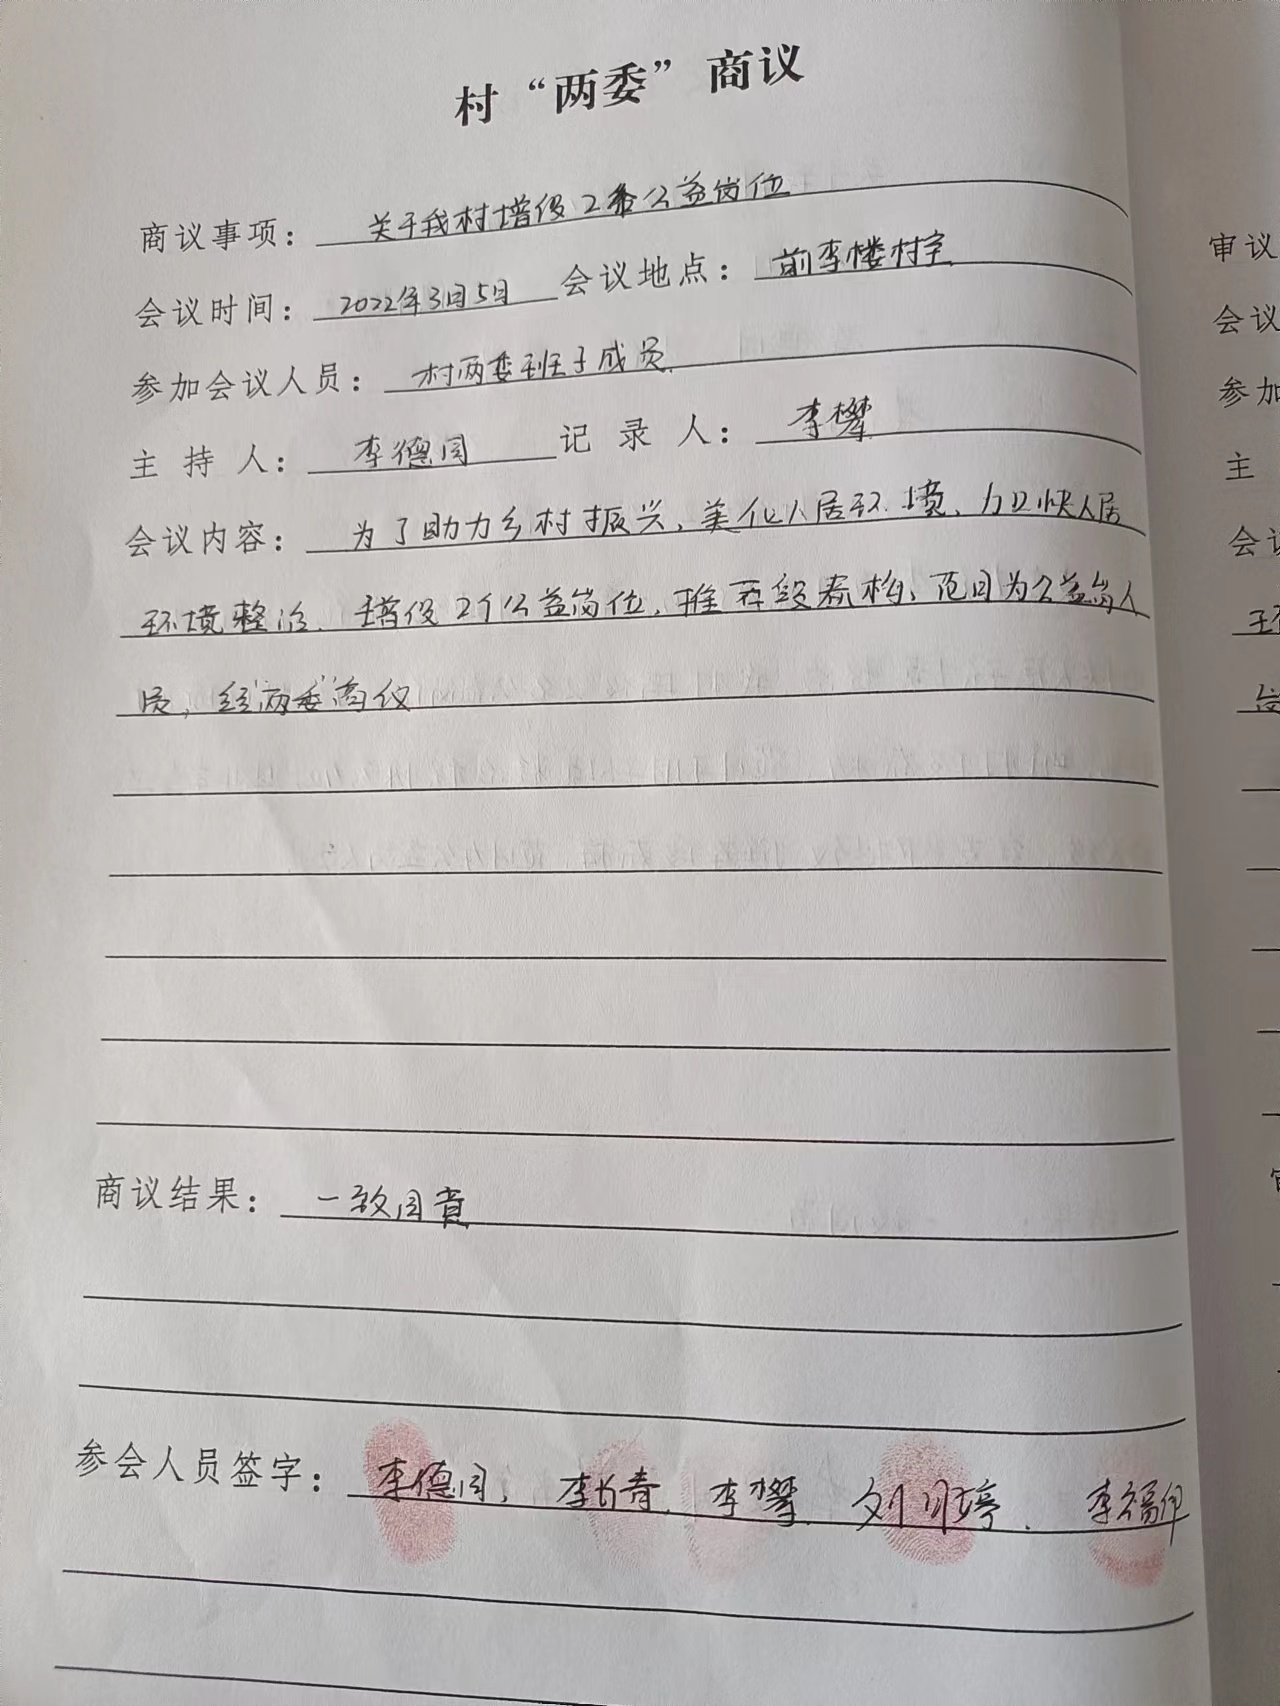 村“两委”商议
商议事项： 关于我村增设2个公益岗位
会议时间： 2022年3月5日 会议地点： 前李楼村室
参加会议人员： 村两委班子成员
主 持 人： 李德同 记 录 人： 李攀
会议内容： 为了助力乡村振兴，美化人居环境，加快人居
环境整治，增设2个公益岗位，推荐段春梅、范同为公益岗人
员，经“两委”商仪
商议结果： 一致同意
参会人员签字： 李德同、李长青、李攀、刘月婷、李福印
审议
会议
参加
主
会议